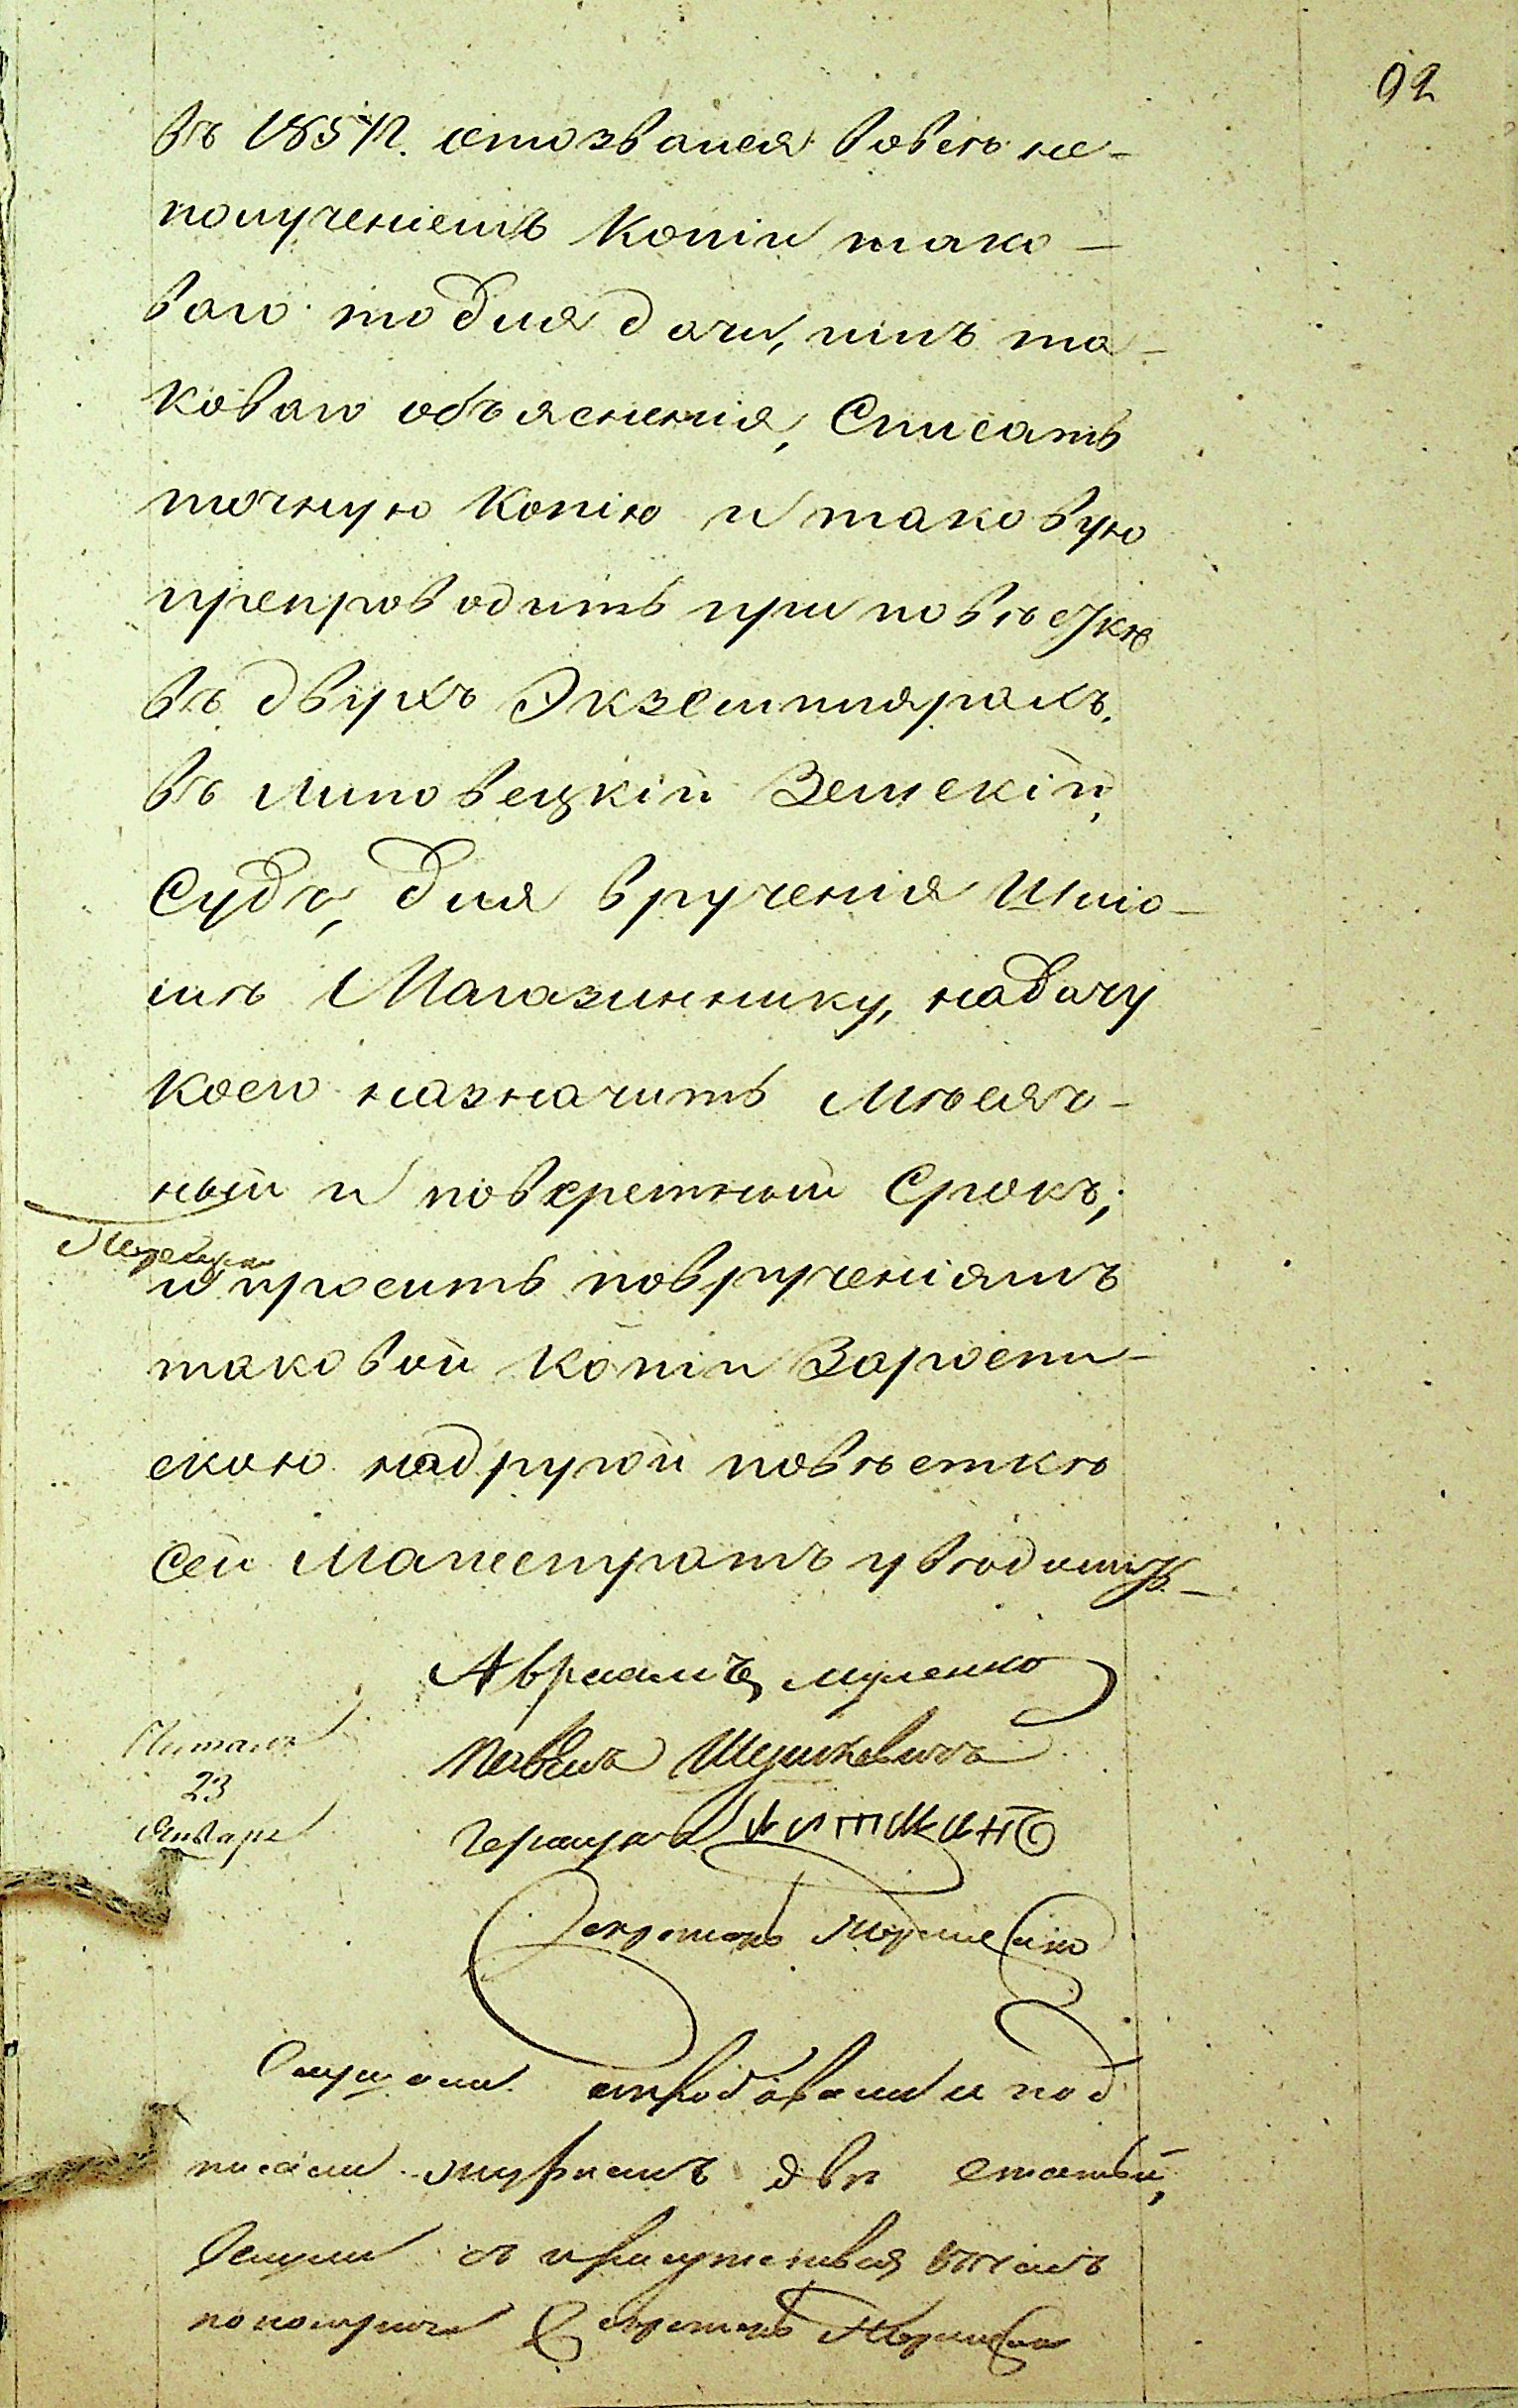 92
въ 185 г. отозвался вовсѣ не-
полученіемъ Копіи тако-
ваго то для дачи, имъ та-
коваго объясненія, Списать
точную Копію и таковую
препроводить при повѣсткѣ
въ двухъ Экземплярахъ.
въ Липовецкій Земскій
Судъ, для врученія Шліо-
мѣ Магазиннику, надачу
коего назначить Мѣсяч-
ный и поверстный Срокъ;
и просить поврученіямъ
таковой Копіи Зароспи-
скою надругой повѣсткѣ
сей Магистратъ уведомить
Авраамъ
Павелъ
Читалъ
23
Января
Секретарь
и под
писали журналъ двѣ статьи,
Секретарь